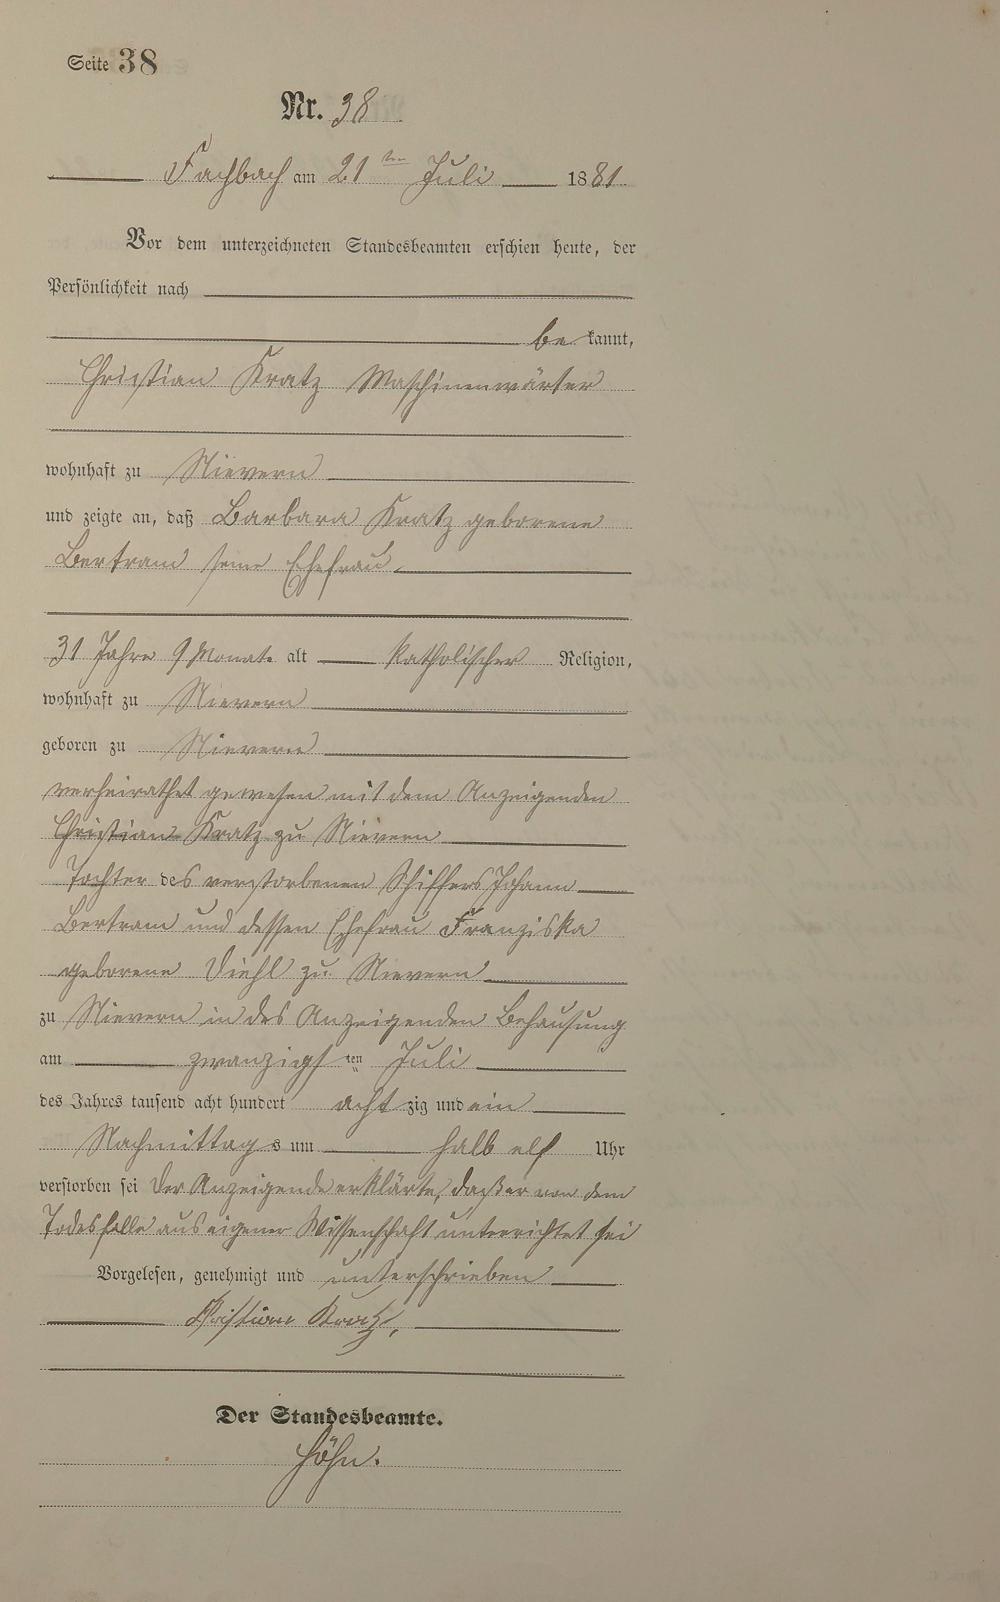 Seite 38
Nr. 38
Fachbach am 21ten Juli 1881
Vor dem unterzeichneten Standesbeamten erschien heute, der
Persönlichkeit nach
be kannt,
Christian Kratz Maschinenwärter
wohnhaft zu Nievern
und zeigte an, daß Barbara Kratz geborene
Bertram seine Ehefrau,
31 Jahre 9 Monate alt katholischer Religion,
wohnhaft zu Nievern
geboren zu Nievern
verheirathet gewesen mit dem Anzeigenden
Christian Kratz zu Nievern
Tochter des verstorbenen Schiffers Johann
Bertram und dessen Ehefrau Franziska
geborene Diehl zu Nievern
zu Nievern in des Anzeigenden Behausung
am zwanzigsten Juli
des Jahres tausend acht hundert achtzig und ein
Nachmittags um halb elf Uhr
verstorben sei Der Anzeigende erklärte, daß er von dem
Todesfalle aus eigener Wissenschaft unterrichtet sei
Vorgelesen, genehmigt und unterschrieben
Christian Kratz,
Der Standesbeamte.
Höhn.